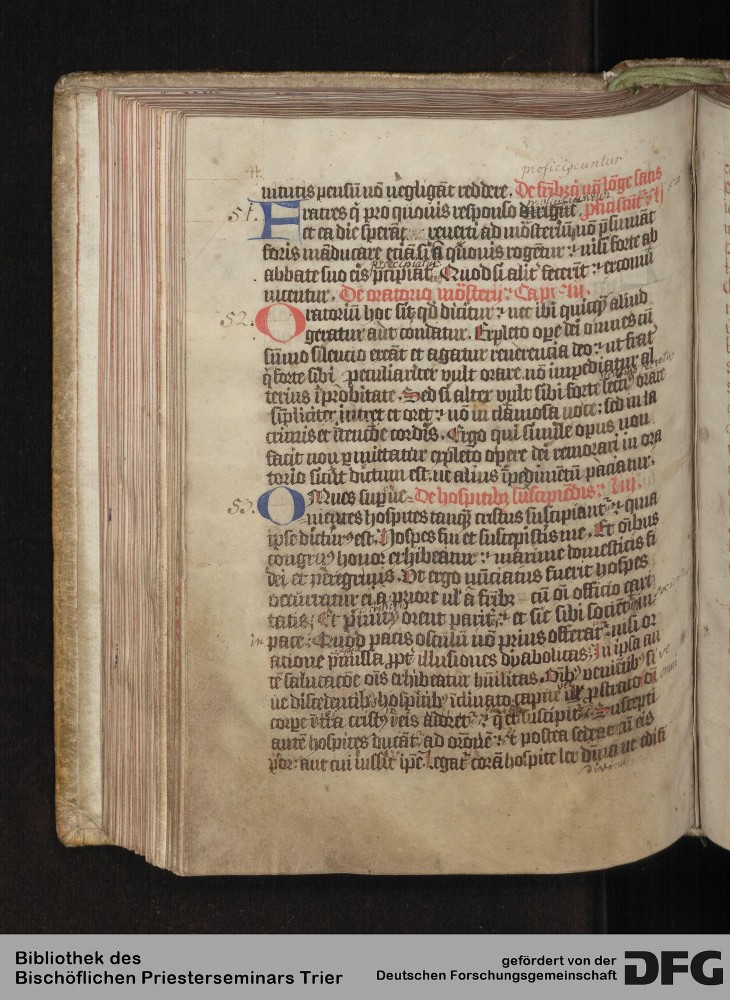 proficiscuntur
44.
uitutis pensū nō negligāt reddere. De frībꝫ q̄ nō lōge satis
51. Fratres q̄ pro quouis responso dirigūt. pficiscūt
et ea die sperāt reuerti ad mōsteriū nō p̄sumāt
foris māducare eciā si a quouis rogētur nisi forte ab
abbate suo eis p̄cipiat. Quod si alit̄ fecerit excomū
nicentur. De oratorio mōsterij Cap̄ lij.
52. Oratoriū hoc sit qđ dicitur nec ibi quicq̄ aliud
geratur aut condatur. Expleto ope dei omnes cū
sūmo silencio exeāt et agatur reuerencia deo ut frat̄
q̄ forte sibi peculiariter vult orare nō impediatur al
terius īprobitate. Sed si alter vult sibi forte secr orare
sīpliciter intret et oret nō in clāmosa uoce sed in la
crimis et ītencōe cordis. Ergo qui simile opus non
facit non pmittatur expleto opere dei remorari in ora
torio sicut dictum est. ne alius īpedimētū paciatur.
53. Omnes supue De hospitibꝫ suscipiēdis liij.
nientes hospites tanq̄ cristus suscipiant quia
ipse dicturꝰ est. Hospes fui et suscepistis me. Et oībus
congruꝰ honor exhibeatur maxime domesticis fi
dei et peregrinis. Vt ergo nūciatus fuerit hospes
occurratur ei a priore ul̄ a frībꝫ cū oī officio cari
tatis. Et primitꝰ orent parit̄ et sic sibi sociēt in
in pace. Quod pacis osculū nō prius offerat nisi or
atione p̄missa ppt̄ illusiones dyabolicas. In ipsa au
tē salutacōe oīs exhibeatur hūilitas. Oībꝫ venientibꝫ si
ue discedentibꝫ hospitibꝫ īclinato capite ul̄ pstrato oī
corpe ī t̄ra cristꝰ ī eis adoret̄ q̄ et suscipit̄. Suscepti
autē hospites ducāt̄ ad oroē et postea sedeat cū eis
p̄or aut cui iussit̄ ip̄e. Legat̄ corā hospite lex diuīa ut edifi
divina
Bibliothek des
Bischöflichen Priesterseminars Trier
gefördert von der
Deutschen Forschungsgemeinschaft
DFG